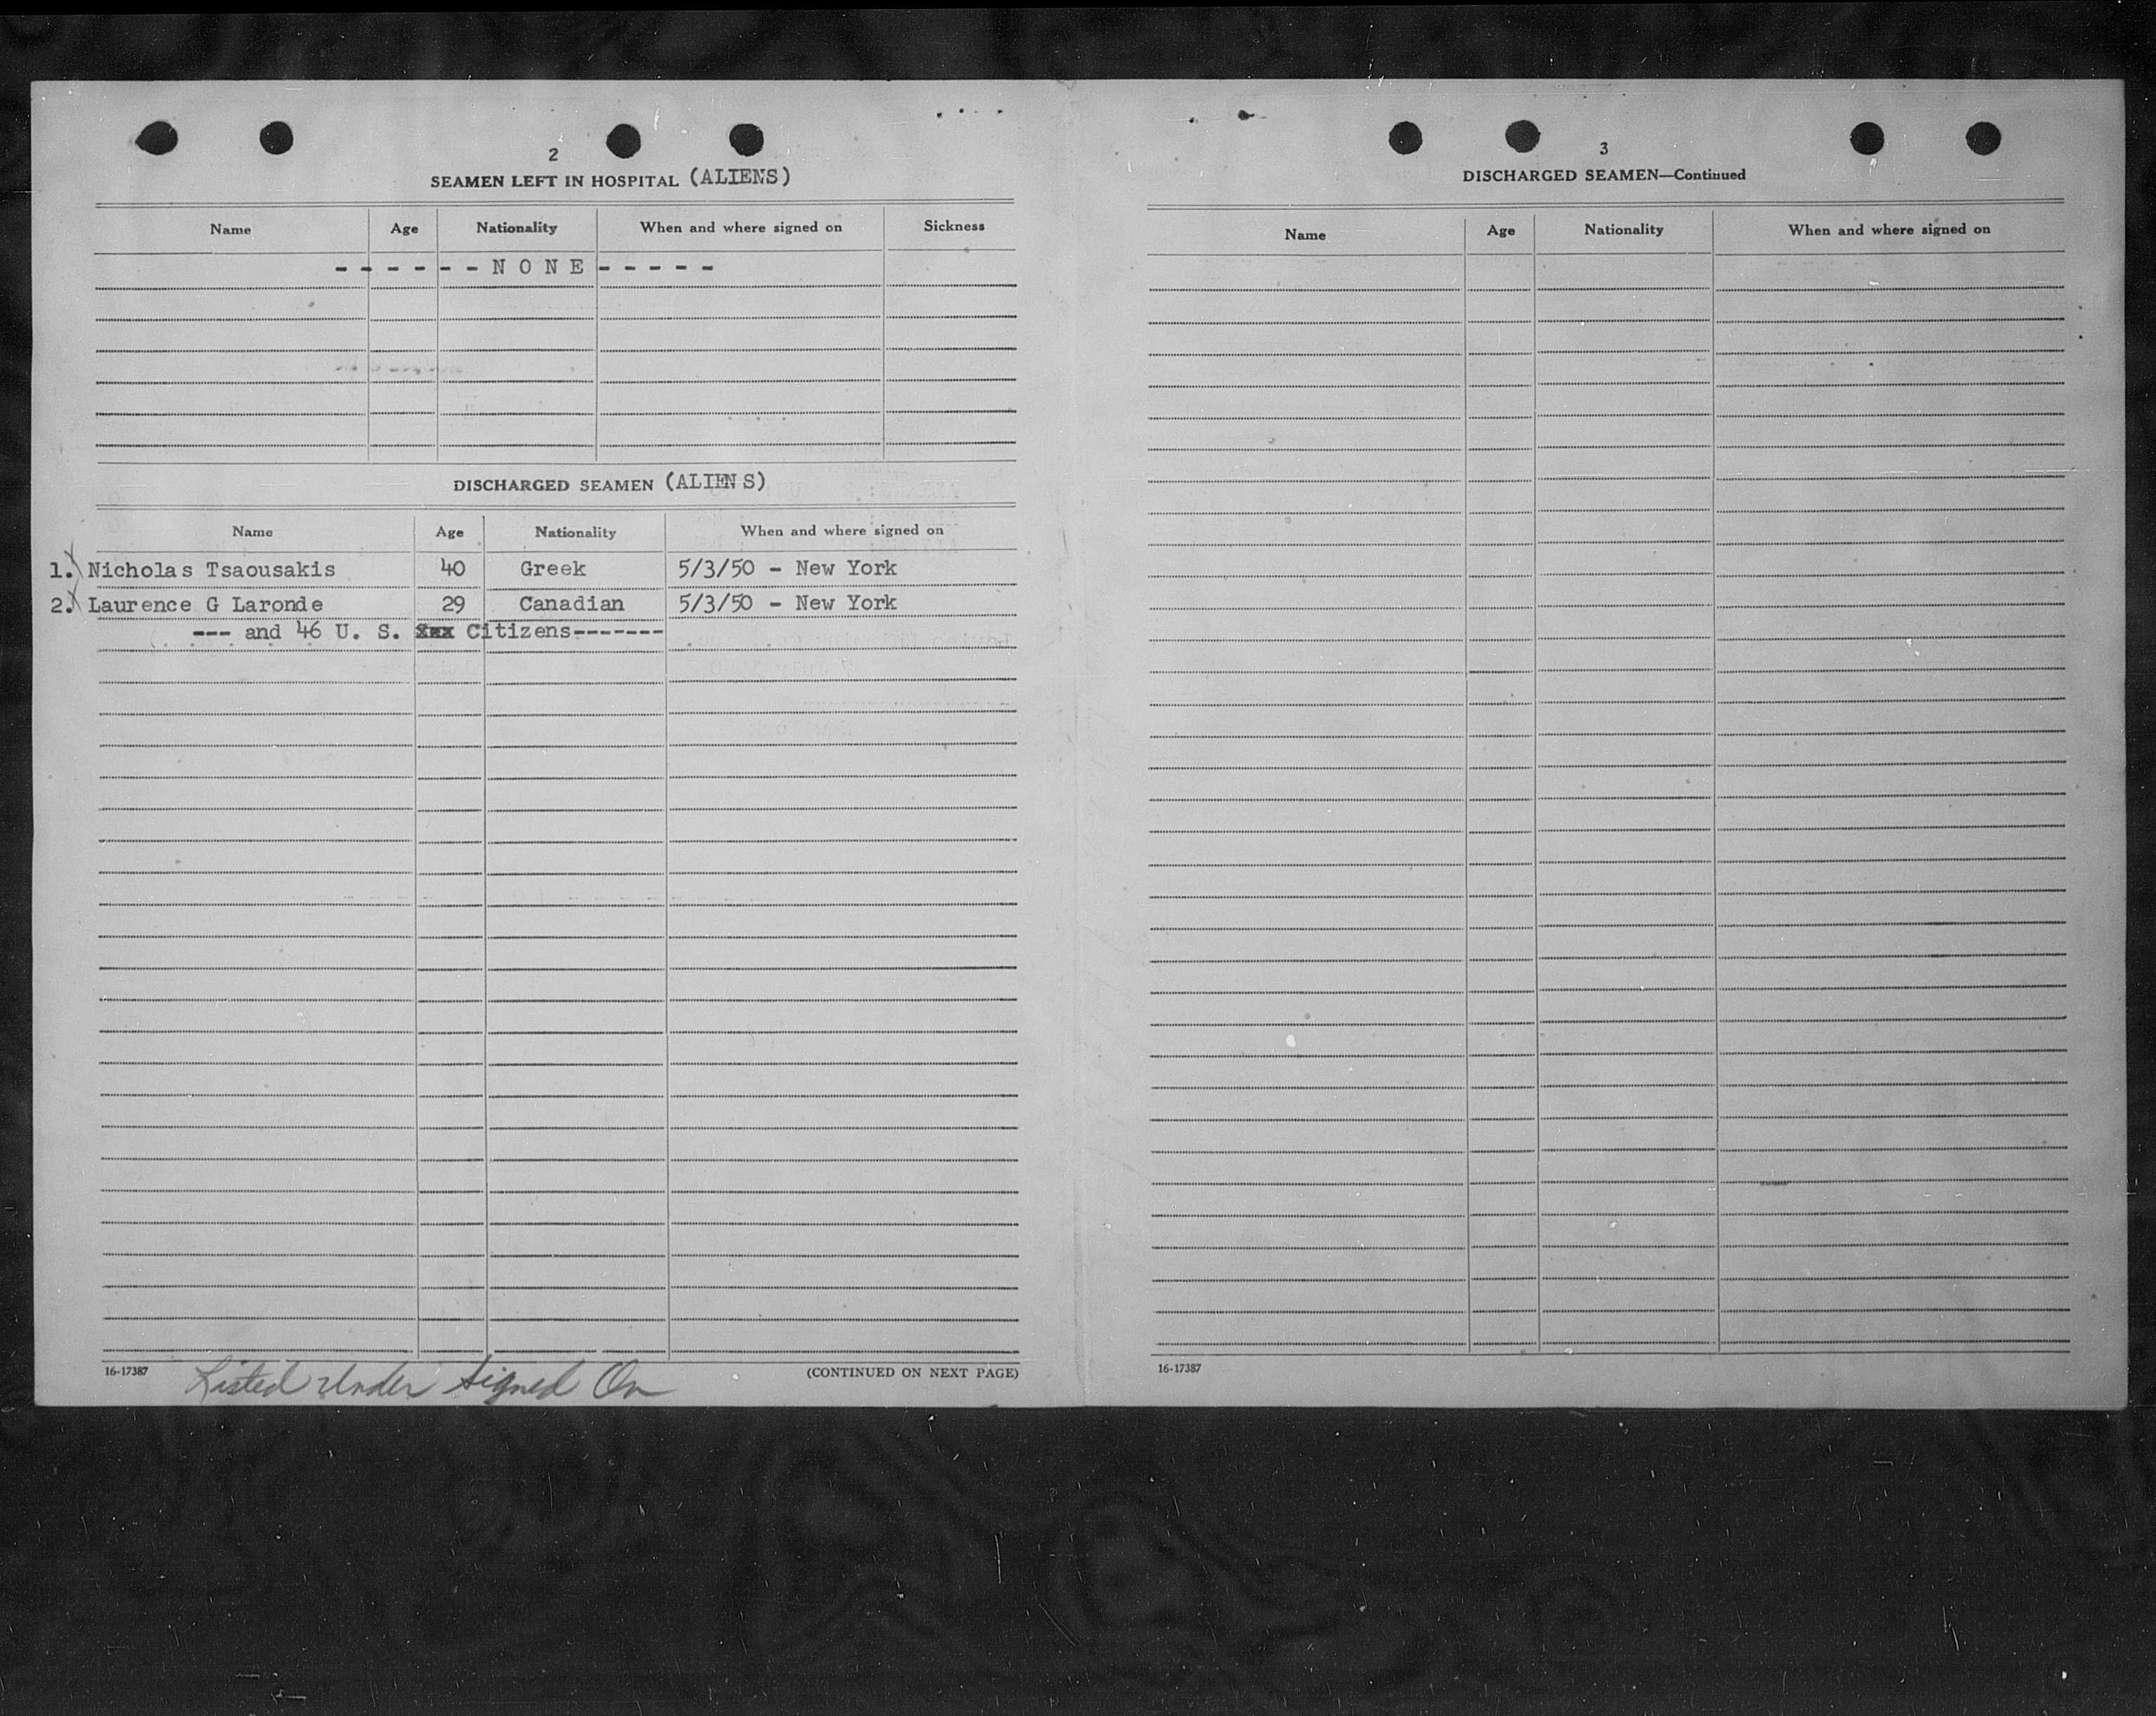 2
SEAMEN LEFT IN HOSPITAL (ALIENS)
Name Age Nationality When and where signed on Sickness
- - - - - - N O N E - - - - -
DISCHARGED SEAMEN (ALIENS)
Name Age Nationality When and where signed on
1. Nicholas Tsaousakis 40 Greek 5/3/50 - New York
2. Laurence G Laronde 29 Canadian 5/3/50 - New York
--- and 46 U. S. Citizens-------
16-17387
Listed Under Signed On
(CONTINUED ON NEXT PAGE)
3
DISCHARGED SEAMEN—Continued
Name Age Nationality When and where signed on
16-17387